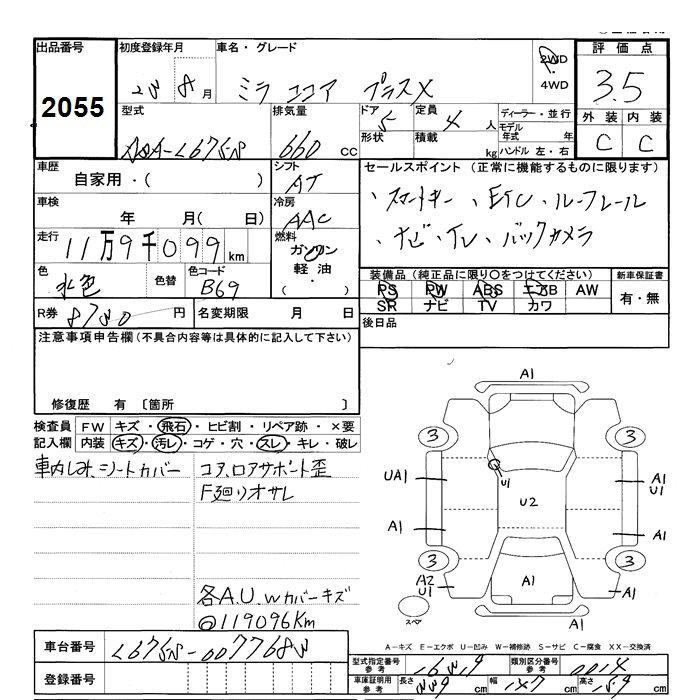 出品番号 初度登録年月 車名・グレード 2WD 評価点
2055 8月 ミラ ココア プラスX 4WD 3.5
型式 排気量 ドア 5 定員 4人 ディーラー・並行 外装 内装
660 cc 形状 積載 kg モデル年式 年 ハンドル 左・右 C C
車歴 自家用・( ) シフト AT セールスポイント (正常に機能するものに限ります)
車検 年 月( 日) 冷房 AAC 、スマートキー、ETC、ルーフレール
走行 11万9千099km 燃料 ガソリン 軽油 ・( ) 、ナビ、TV、バックカメラ
色 水色 色替 色コード B69 装備品 (純正品に限り○をつけてください) 新車保証書
PS PW ABS エアB AW 有・無
SR ナビ TV カワ
R券 円 名変期限 月 日 後日品
注意事項申告欄 (不具合内容等は具体的に記入して下さい)
修復歴 有 〔箇所 〕
検査員 FW キズ・飛石・ヒビ割・リペア跡・×要
記入欄 内装 キズ・汚レ・コゲ・穴・スレ・キレ・破レ
車内しみ、シートカバー コア、ロアサポート歪
F廻りオサレ
各A.U.Wカバーキズ
@119096Km
A1
3 3
U1
UA1 U2 A1
U1
A1 A1
3 3
A2
U1 A1 A1
スペア A1
A−キズ E−エクボ U−凹み W−補修跡 S−サビ C−腐食 XX−交換済
車台番号
登録番号
型式指定番号 参考 類別区分番号 参考 0014
車庫証明用 参考 長さ cm 幅 147 cm 高さ cm